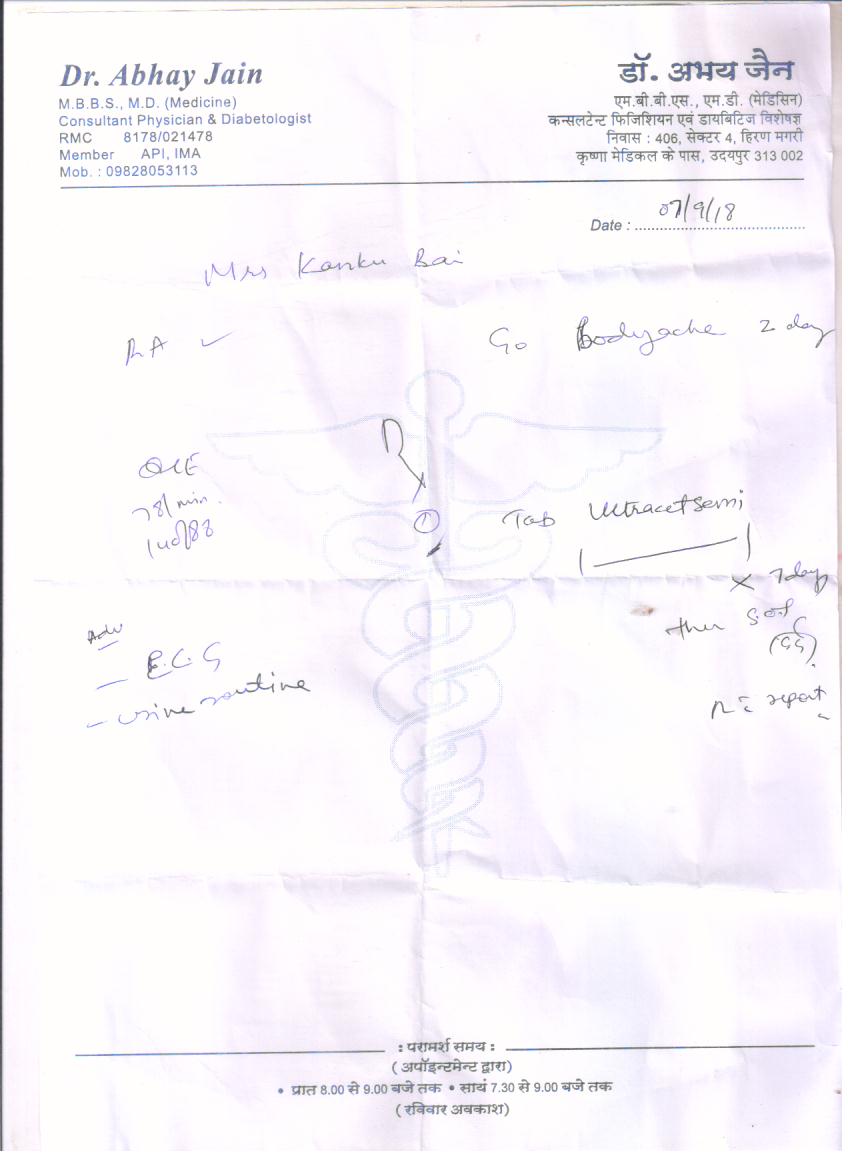 Dr. Abhay Jain
M.B.B.S., M.D. (Medicine)
Consultant Physician & Diabetologist
RMC 8178/021478
Member API, IMA
Mob. : 09828053113
डॉ. अभय जैन
एम.बी.बी.एस., एम.डी. (मेडिसिन)
कन्सलटेन्ट फिजिशियन एवं डायबिटिज विशेषज्ञ
निवास : 406, सेक्टर 4, हिरण मगरी
कृष्णा मेडिकल के पास, उदयपुर 313 002
Date : 07/9/18
Mrs Kanku Bai
RA ✓
C/o Bodyache 2 day
O/E
78/min
140/88
Rx
① Tab Ultracet semi
x 7day
then S.O.S
Adv
- E.C.G
- urine routine
R c̄ report
: परामर्श समय :
( अपॉइन्टमेन्ट द्वारा)
• प्रात 8.00 से 9.00 बजे तक • सायं 7.30 से 9.00 बजे तक
( रविवार अवकाश)